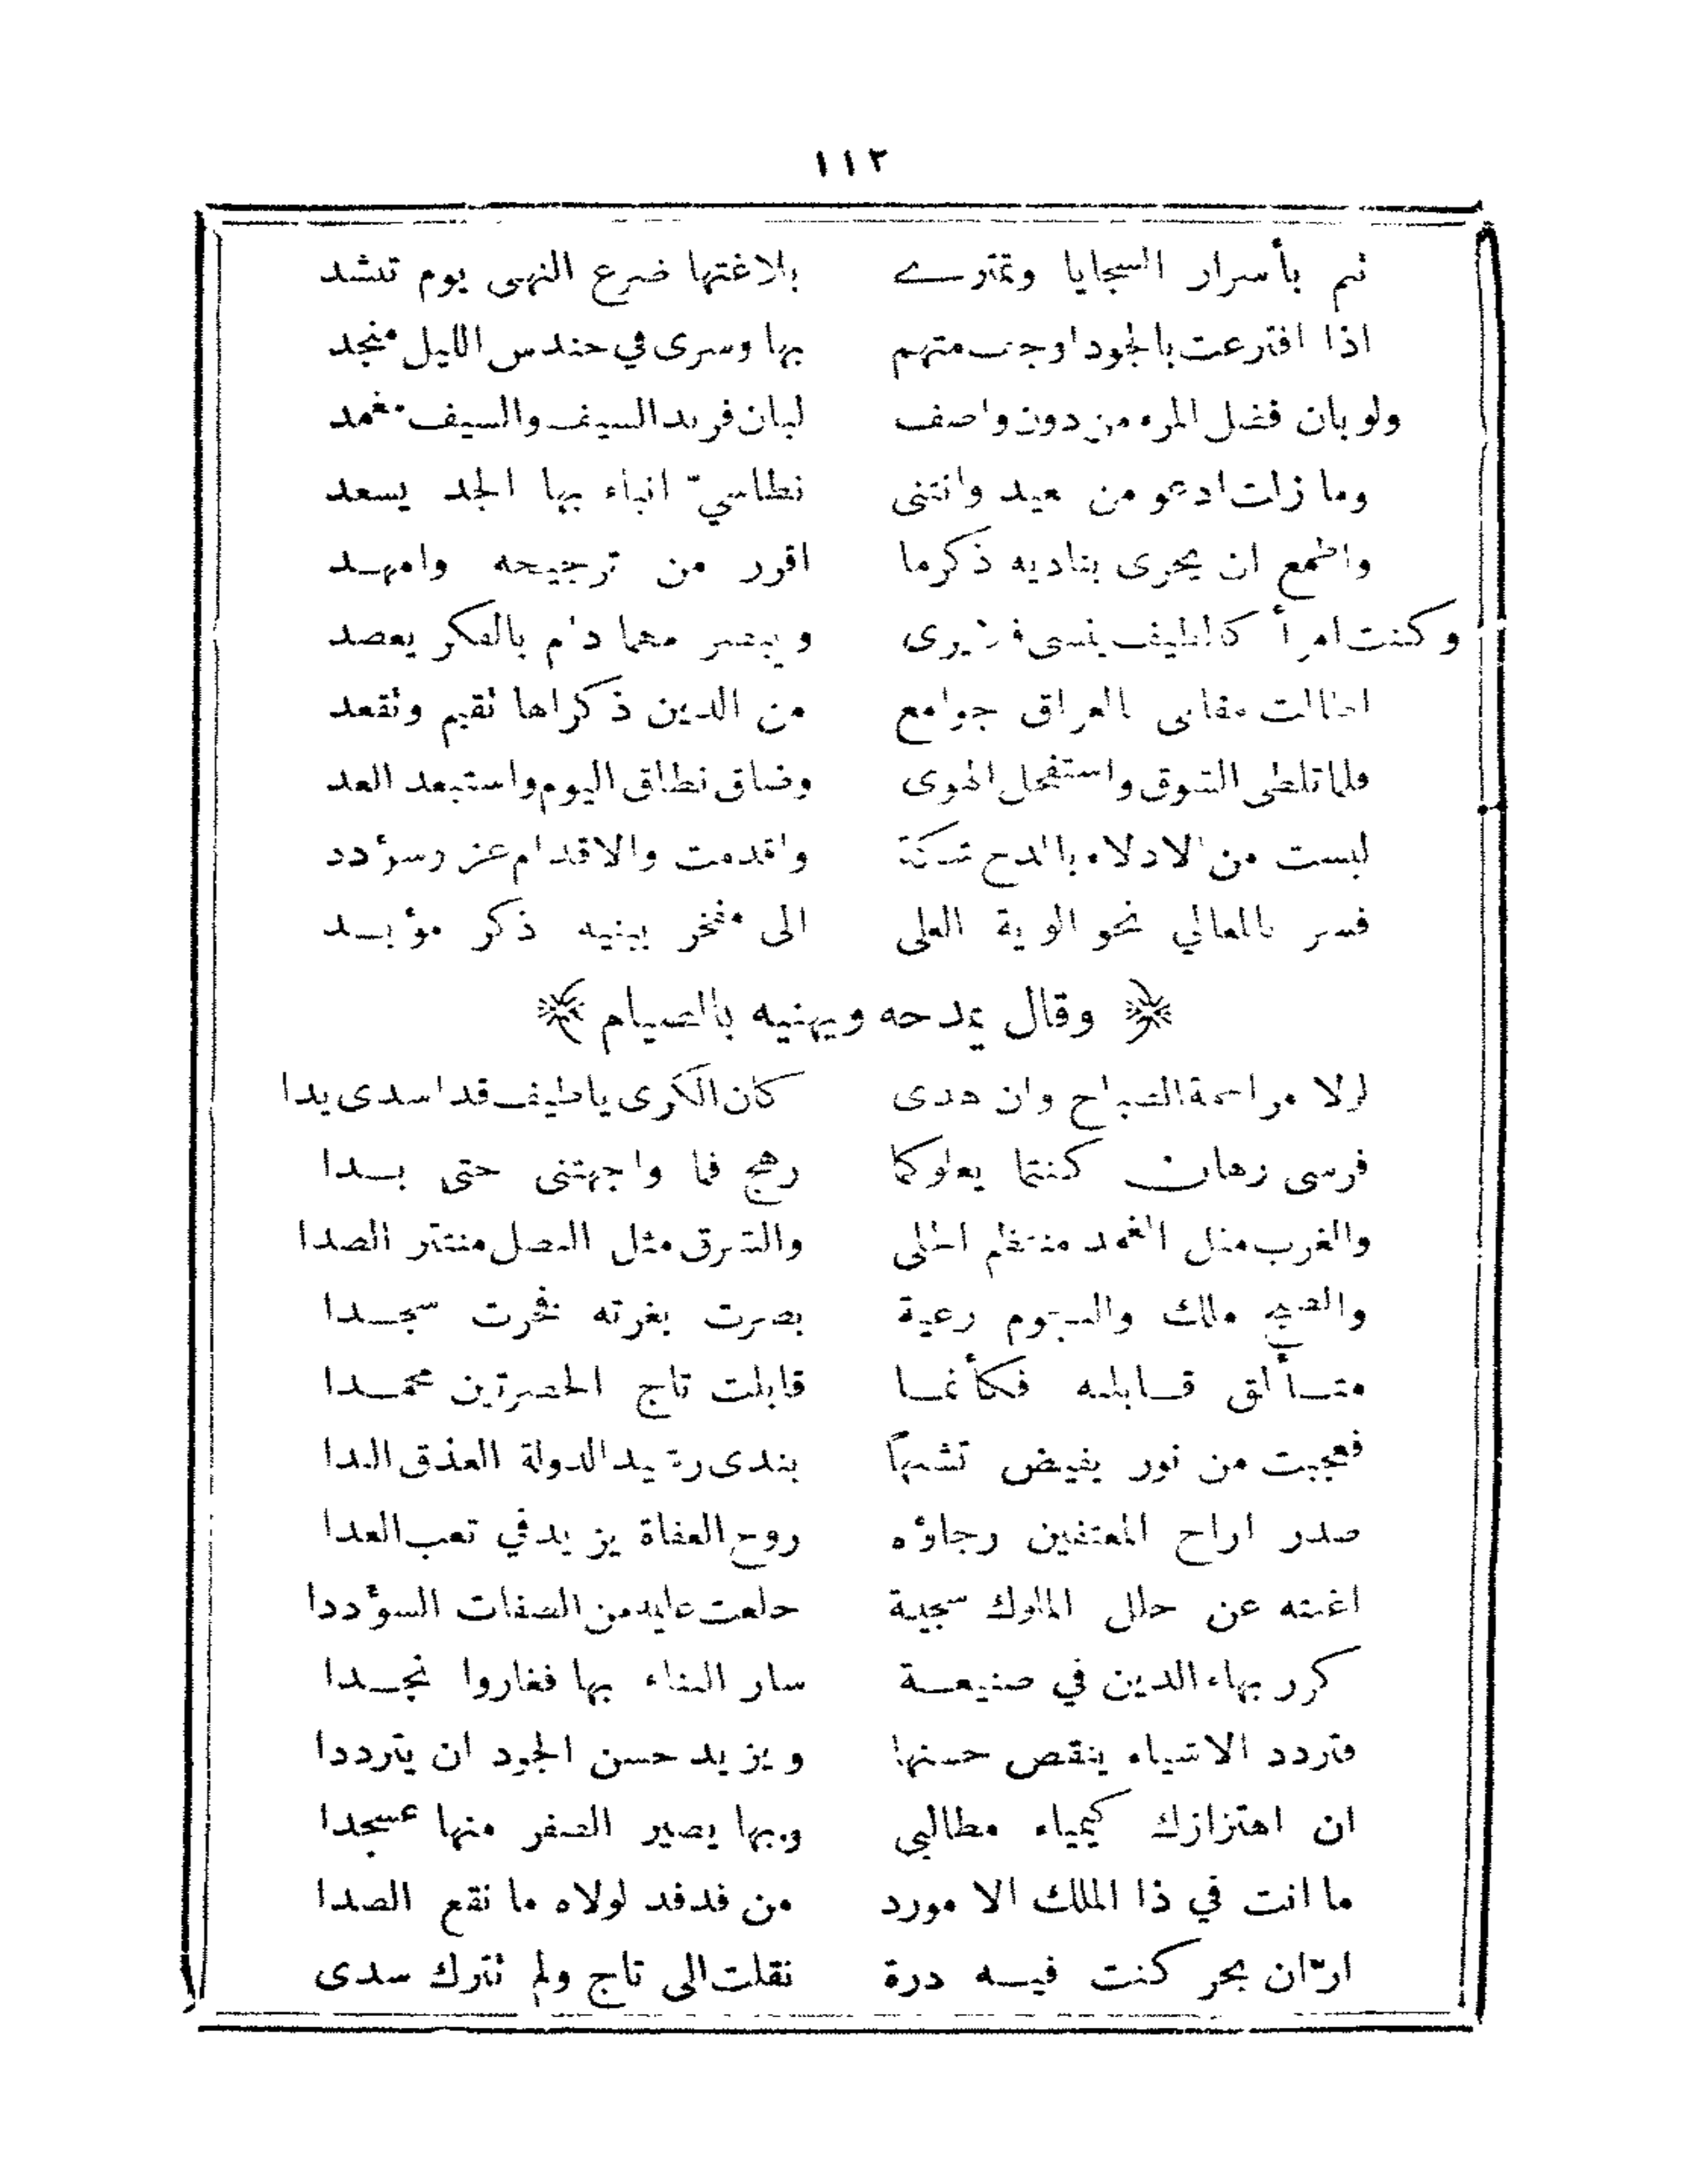 ١١٢
تنم بأسرار السجايا وتمترے بلاغتها ضرع النهى يوم تنشد
اذا افترعت بالجود اوجب متهم بها وسرى في حندس الليل منجد
ولو بان فضل المرء من دون واصف لبان فريد السيف والسيف مغمد
وما زلت ادعو من بعيد وانثنى نطاسيّ انباء بها الجد يسعد
واطمع ان يجرى بناديه ذكرما اقرر من ترجيحه وامهد
وكنت امرأ كالطيف يمسى فلا يرى ويبصر مهما دام بالفكر يعصد
اطالت مقامى بالعراق جوامع من الدين ذكراها تقيم وتقعد
فلما تلظى الشوق واستفحل الهوى وضاق نطاق اليوم واستبعد الغد
لبست من الادلاء بالمدح شكة واقدمت والاقدام عز وسؤدد
فسر بالمعالي نحو الوية العلى الى مفخر يبنيه ذكر مؤبد
﴿ وقال يمدحه ويهنيه بالصيام ﴾
لولا مزاحمة الصباح وان هدى كان الكرى ياطيف قد اسدى يدا
فرسى رهان كنتما يعلوكما رهج فما واجهتنى حتى بدا
والغرب مثل الغمد منتظم الحلى والشرق مثل النصل منتثر الصدا
والصبح ملك والنجوم رعية بصرت بغرته فخرت سجدا
متألق قابلته فكأنما قابلت تاج الحضرتين محمدا
فعجبت من نور يفيض تشبهاً بندى رشيد الدولة الغدق الندا
صدر اراح المعتفين رجاؤه روح العفاة يزيد في تعب العدا
اغنته عن حلل الملوك سجية خلعت عليه من الصفات السؤددا
كرر بهاء الدين في صنيعة سار الثناء بها فغاروا نجدا
فتردد الاشياء ينقص حسنها ويزيد حسن الجود ان يترددا
ان اهتزازك كيمياء مطالبي وبها يصير الصفر منها عسجدا
ما انت في ذا الملك الا مورد من فدفد لولاه ما نقع الصدا
ارّان بحر كنت فيه درة نقلت الى تاج ولم تترك سدى